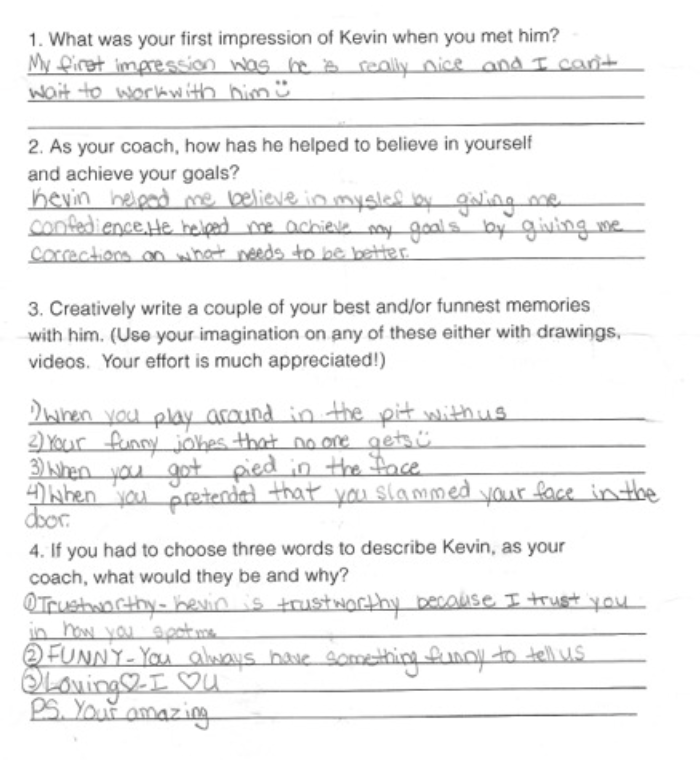 1. What was your first impression of Kevin when you met him?
My first impression was he is really nice and I can't
wait to work with him
2. As your coach, how has he helped to believe in yourself
and achieve your goals?
Kevin helped me believe in myslef by giving me
confedience. He helped me achieve my goals by giving me
corrections on what needs to be better.
3. Creatively write a couple of your best and/or funnest memories
with him. (Use your imagination on any of these either with drawings,
videos. Your effort is much appreciated!)
1) When you play around in the pit with us
2) Your funny jokes that no one gets
3) When you got pied in the face
4) When you pretended that you slammed your face in the
door.
4. If you had to choose three words to describe Kevin, as your
coach, what would they be and why?
① Trustworthy - Kevin is trustworthy because I trust you
in how you spot me
② FUNNY - You always have something funny to tell us
③ Loving ♡ - I ♡ U
PS. Your amazing